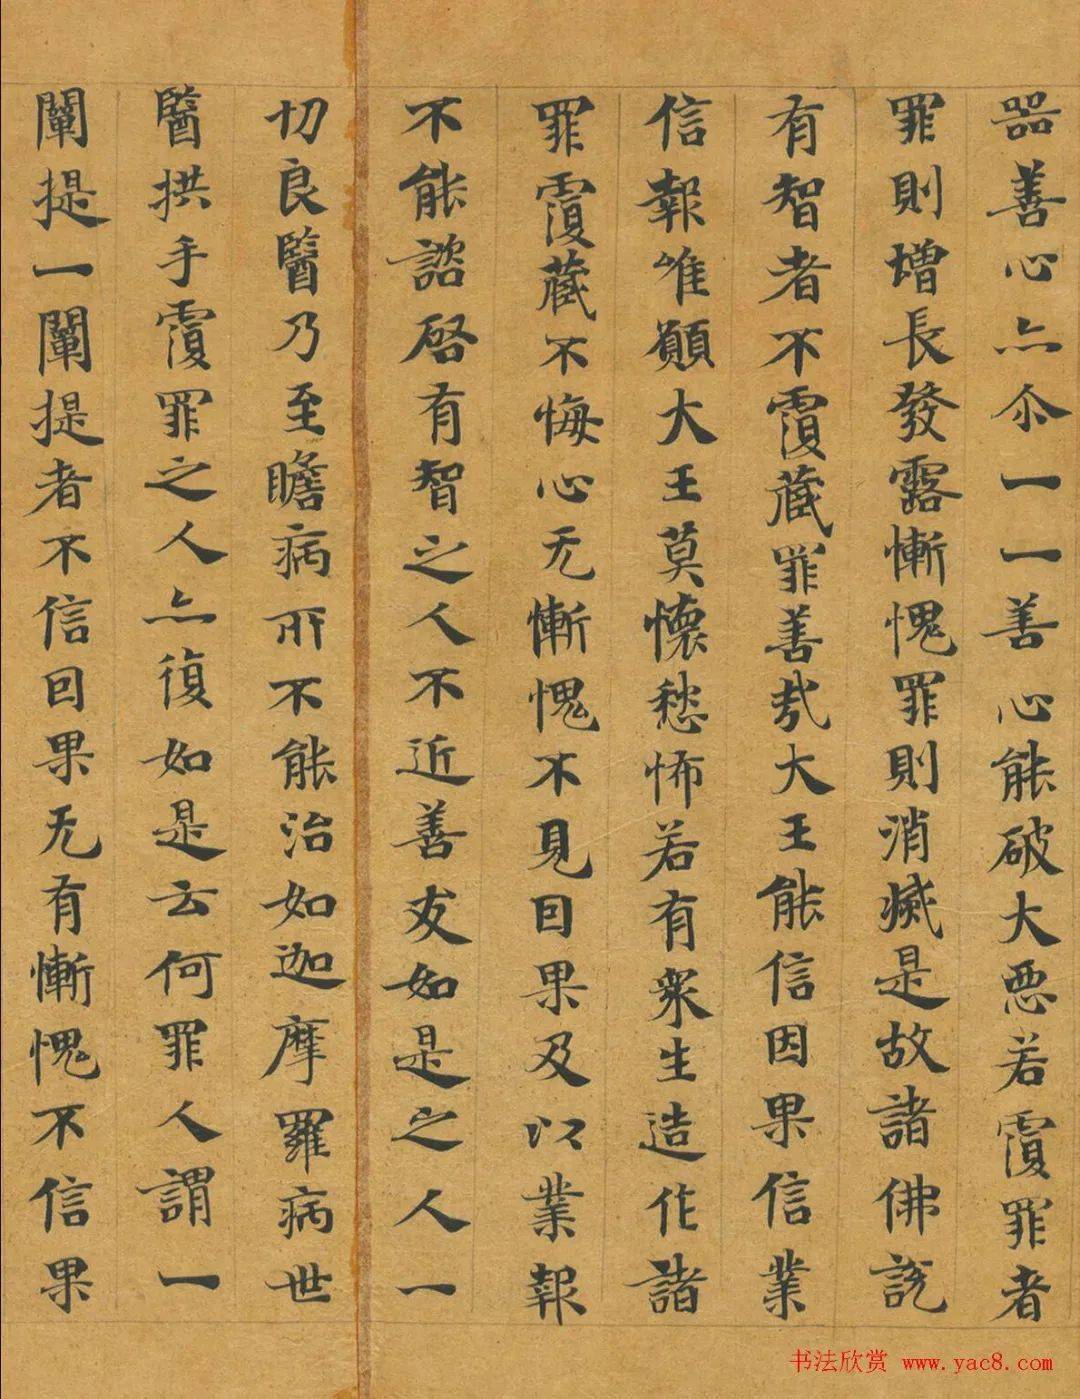 器善心亦尒一一善心能破大惡若覆罪者
罪則增長發露慚愧罪則消滅是故諸佛説
有智者不覆藏罪善哉大王能信因果信業
信報唯願大王莫懷愁怖若有衆生造作諸
罪覆藏不悔心无慚愧不見因果及以業報
不能諮啓有智之人不近善友如是之人一
切良醫乃至瞻病所不能治如迦摩羅病世
醫拱手覆罪之人亦復如是云何罪人謂一
闡提一闡提者不信因果无有慚愧不信果
书法欣赏 www.yac8.com